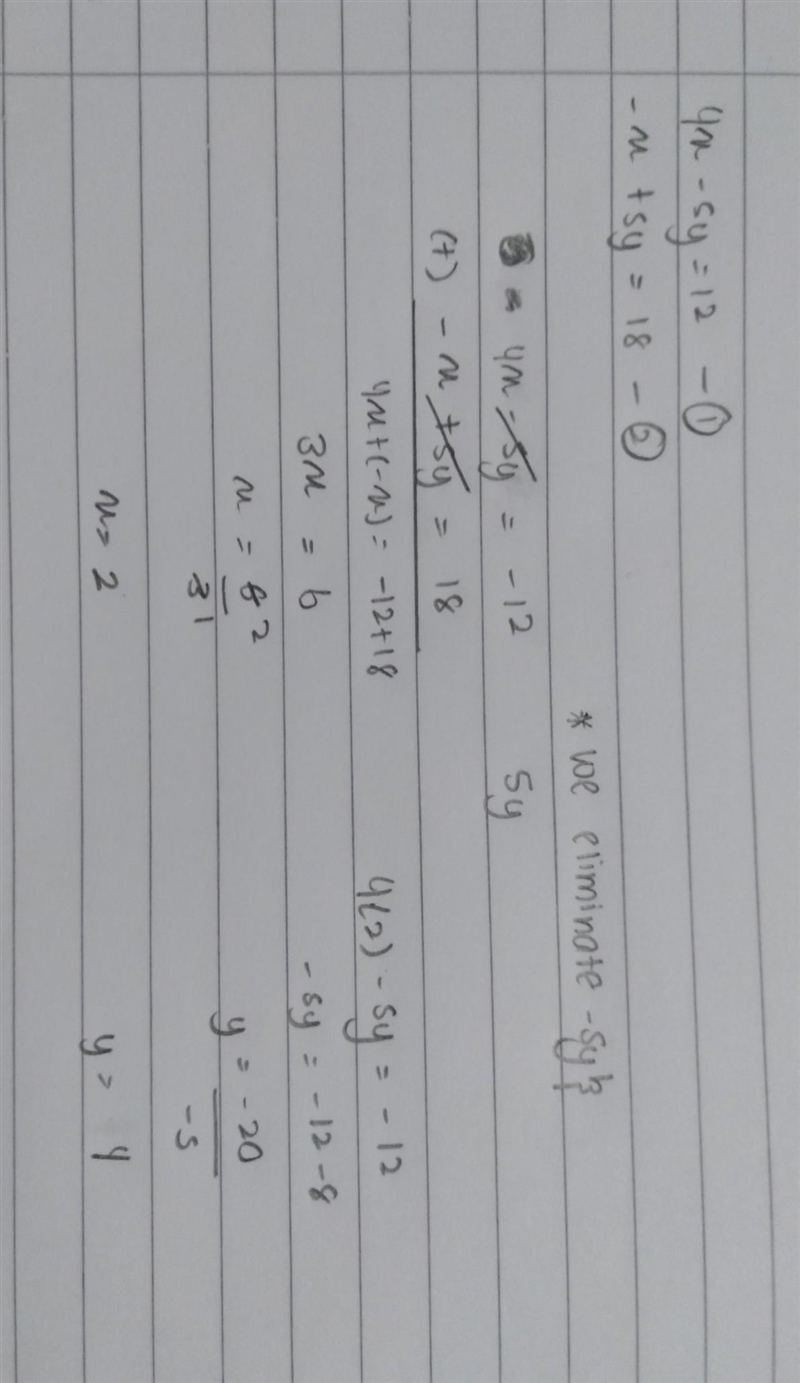 4x - 5y = 12 - ①
-x + 5y = 18 - ②
* we eliminate -5y &
4x - 5y = -12 5y
(+) -x + 5y = 18
4x + (-x) = -12 + 18 4(2) - 5y = -12
3x = 6 -5y = -12 - 8
x = 6 2 y = -20
3 1 -5
x = 2 y = 4